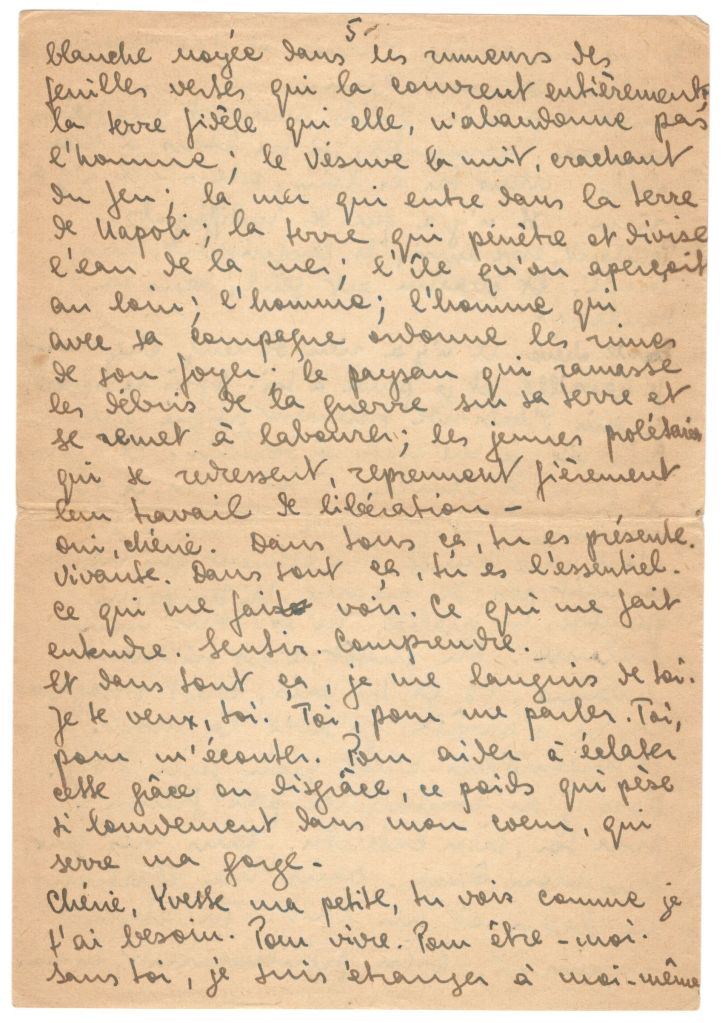 5
blanche noyée dans les rumeurs des
feuilles vertes qui la couvrent entièrement;
la terre fidèle qui elle, n'abandonne pas
l'homme; le Vésuve la nuit, crachant
du feu; la mer qui entre dans la terre
de Napoli; la terre qui pénètre et divise
l'eau de la mer; l'île qu'on aperçoit
au loin; l'homme; l'homme qui
avec sa compagne ordonne les ruines
de son foyer; le paysan qui ramasse
les débris de la guerre sur sa terre et
se remet à labourer; les jeunes prolétaires
qui se redressent, reprennent fièrement
leur travail de libération —
oui, chérie. Dans tous ça, tu es présente.
Vivante. Dans tout ça, tu es l'essentiel.
Ce qui me fait voir. Ce qui me fait
entendre. Sentir. Comprendre.
Et dans tout ça, je me languis de toi.
Je te veux, toi. Toi, pour me parler. Toi,
pour m'écouter. Pour aider à éclater
cette grâce ou disgrâce, ce poids qui pèse
si lourdement dans mon coeur, qui
serre ma gorge —
Chérie, Yvette ma petite, tu vois comme je
t'ai besoin. Pour vivre. Pour être - moi.
Sans toi, je suis étranger à moi-même